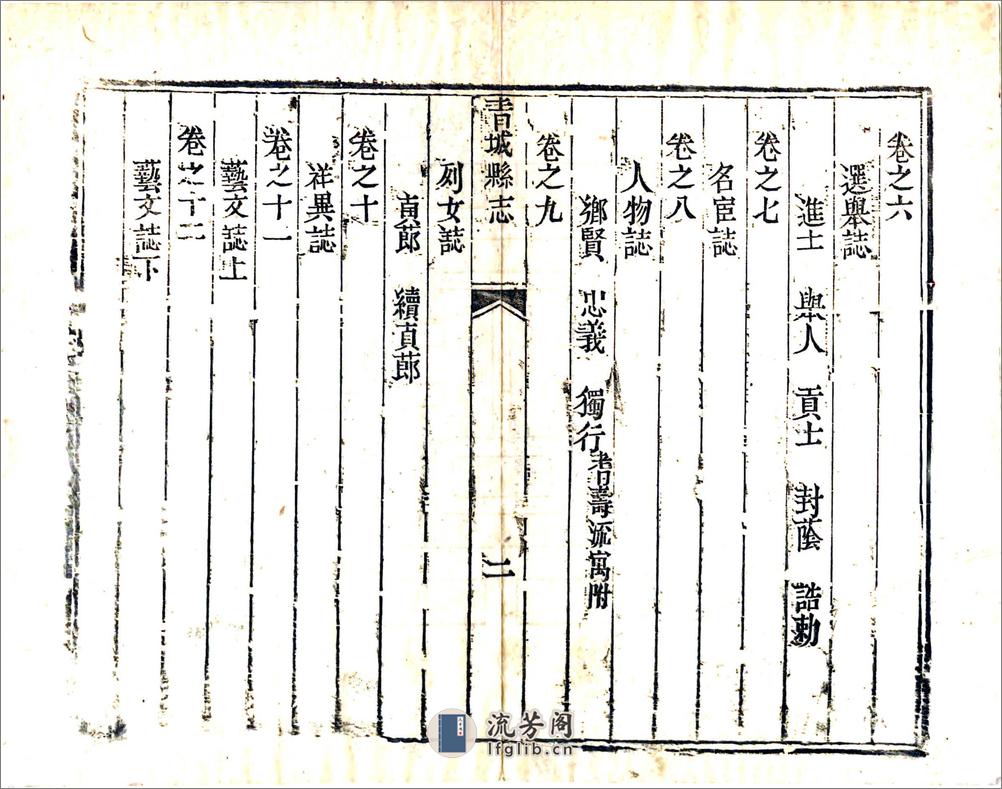 卷之六
選舉誌
進士 舉人 貢士 封蔭 誥勅
卷之七
名宦誌
卷之八
人物誌
鄉賢 忠義 獨行耆壽流寓附
卷之九
青城縣志
二
列女誌
貞節 續貞節
卷之十
祥異誌
卷之十一
藝文誌上
卷之十二
藝文誌下
流芳阁
lfglib.cn